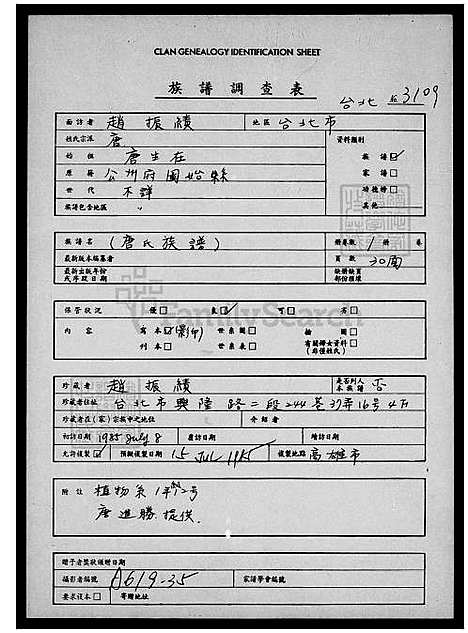 CLAN GENEALOGY IDENTIFICATION SHEET
族譜調查表
台北 3109
面訪者 趙振績 地區 台北市
姓氏宗派 唐 資料類別
始祖 唐生在 族譜☑
原籍 公州府固始縣 家譜□
世代 不詳 功德榜□
族譜包含地區 〃 其他
族譜名 (唐氏族譜) 冊卷數 1 冊 卷
最新版本編纂者 頁數 30面
最新出版年份或序段日期 缺冊缺頁部份種壞
保管狀況 優□ 良☑ 可□ 劣□
內容 寫本☑(影印) 世系圖□ 繪圖□
刊本□ 世系表□ 有關婦女資料□(非僅姓氏)
珍藏者 趙振績 是否列入本族譜 否
珍藏者住址 台北市興隆路二段244巷39弄16号4F
珍藏者在(家)宗族中之地位 介紹者
初訪日期 1985 July 8 應訪日期 續訪日期
允許複製☑ 預擬複製日期 15 JUL 1985 複製地點 高雄市
附註 植物系
唐進勝提供.
贈予者獎狀頒贈日期
攝影者編號 A619-35 家譜學會編號
要求謄本□ 寄贈地址
FamilySearch